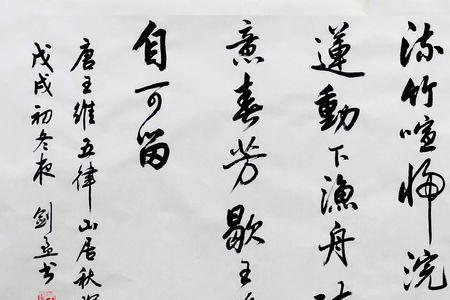 流竹喧歸浣
蓮動下漁舟
意春芳歇王
自可留
唐王維五律山居秋暝
戊戌初冬夜劍孟书